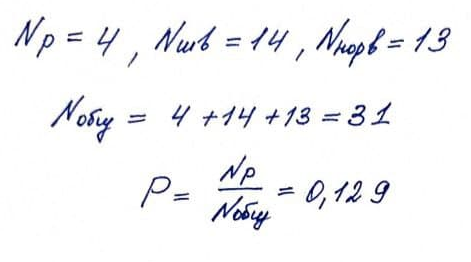 Nр = 4 , Nшв = 14 , Nнорв = 13
Nобщ = 4 + 14 + 13 = 31
P = Nр / Nобщ = 0,129